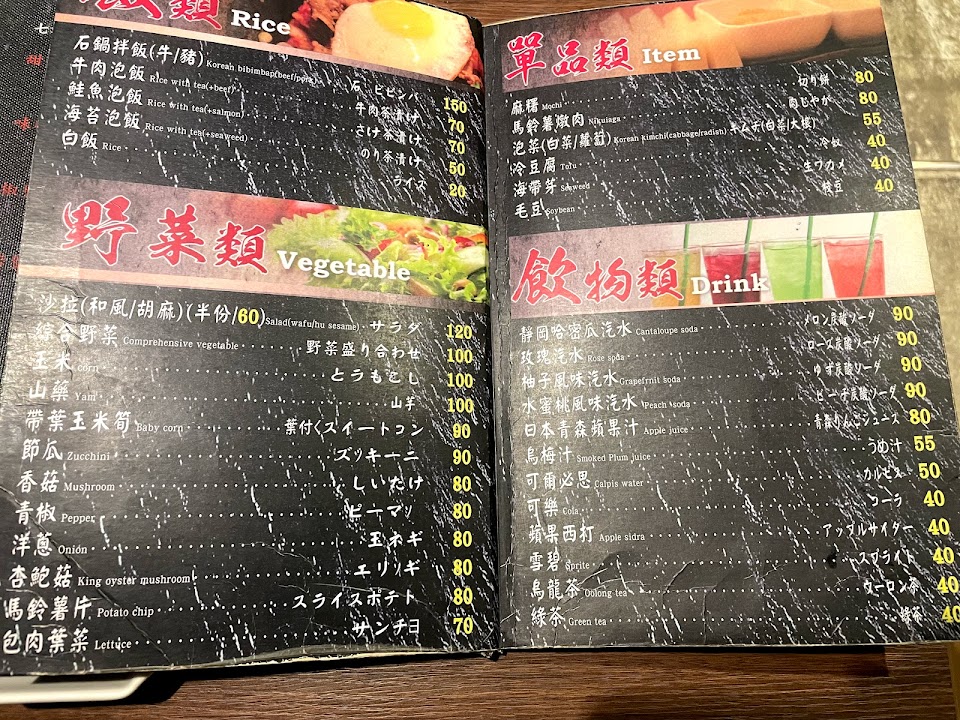 飯類 Rice
石鍋拌飯(牛/豬) Korean bibimbap(beef/pork) 石 ビビンバ 150
牛肉泡飯 Rice with tea(+beef) 牛肉茶漬け 70
鮭魚泡飯 Rice with tea(+salmon) さけ茶漬け 70
海苔泡飯 Rice with tea(+seaweed) のり茶漬け 50
白飯 Rice ライス 20
野菜類 Vegetable
沙拉(和風/胡麻)(半份/60) Salad(wafu/hu sesame) サラダ 120
綜合野菜 Comprehensive vegetable 野菜盛り合わせ 100
玉米 corn とうもこし 100
山藥 Yam 山芋 100
帶葉玉米筍 Baby corn 葉付くスイートコン 90
節瓜 Zucchini ズッキーニ 90
香菇 Mushroom しいたけ 80
青椒 Pepper ピーマン 80
洋蔥 Onion 玉ネギ 80
杏鮑菇 King oyster mushroom エリンギ 80
馬鈴薯片 Potato chip スライスポテト 80
包肉葉菜 Lettuce サンチュ 70
單品類 Item
麻糬 Mochi 切り餅 80
馬鈴薯燉肉 Nikujaga 肉じゃが 80
泡菜(白菜/蘿蔔) Korean Kimchi(cabbage/radish) キムチ(白菜/大根) 55
冷豆腐 Tofu 冷奴 40
海帶芽 Seaweed 生ワカメ 40
毛豆 Soybean 枝豆 40
飲物類 Drink
靜岡哈密瓜汽水 Cantaloupe soda メロン炭酸ソーダ 90
玫瑰汽水 Rose soda ローズ炭酸ソーダ 90
柚子風味汽水 Grapefrnit soda ゆず炭酸ソーダ 90
水蜜桃風味汽水 Peach soda ピーチ炭酸ソーダ 90
日本青森蘋果汁 Apple juice 青森りんごジュース 80
烏梅汁 Smoked Plum juice うめ汁 55
可爾必思 Calpis water カルピス 50
可樂 Cola コーラ 40
蘋果西打 Apple sidra アップルサイダー 40
雪碧 Sprite スプライト 40
烏龍茶 Oolong tea ウーロン茶 40
綠茶 Green tea 緑茶 40